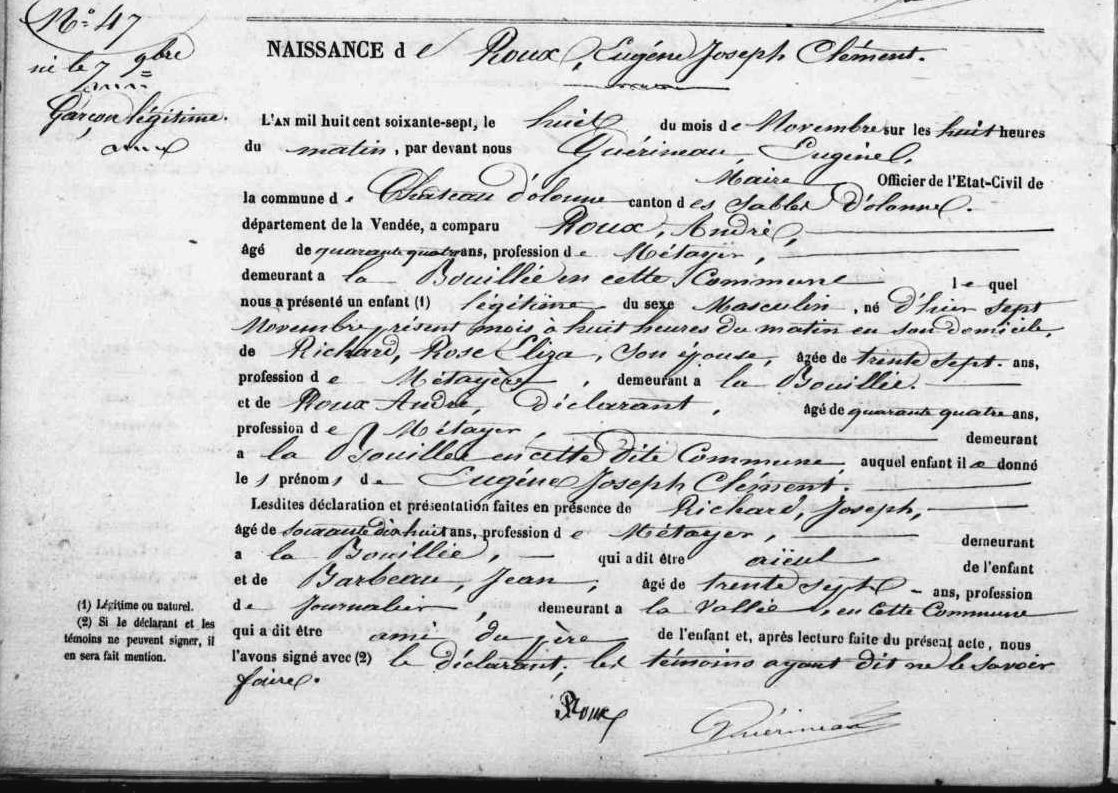 N° 47
né le 7 9bre
Garçon légitime.
NAISSANCE d e Roux, Eugéne Joseph Clément.
L'AN mil huit cent soixante-sept, le huit du mois de Novembre sur les huit heures
du matin, par devant nous Guérineau, Eugène,
Maire Officier de l'Etat-Civil de
la commune d e Château d'olonne canton des Sables D'olonne.
département de la Vendée, a comparu Roux, André,
âgé de quarante quatre ans, profession de Métayer,
demeurant a la Bouillée en cette Commune le quel
nous a présenté un enfant (1) légitime du sexe Masculin, né d'hier sept
Novembre présent mois à huit heures du matin en son domicile,
de Richard, Rose Eliza, son épouse, âgée de trente sept ans,
profession d e Métayère, demeurant a la Bouillée.
et de Roux André, Déclarant, âgé de quarante quatre ans,
profession d e Métayer, demeurant
a la Bouillée en cette dite Commune, auquel enfant il a donné
le s prénom s de Eugéne Joseph Clément.
Lesdites déclaration et présentation faites en présence de Richard, Joseph,
âgé de soixante dix huit ans, profession d e Métayer, demeurant
a la Bouillée, qui a dit être aïeul de l'enfant
et de Barbeau, Jean, âgé de trente sept ans, profession
de Journalier, demeurant a la Vallée, en Cette Commune
qui a dit être ami du père de l'enfant et, après lecture faite du présent acte, nous
l'avons signé avec (2) le déclarant, les témoins ayant dit ne le savoir
faire.
(1) Légitime ou naturel.
(2) Si le déclarant et les
témoins ne peuvent signer, il
en sera fait mention.
Roux
Guérineau